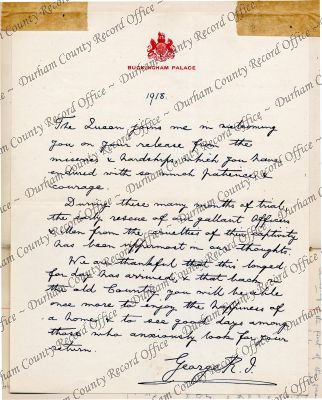 BUCKINGHAM PALACE
1918.
The Queen joins me in welcoming
you on your release from the
miseries & hardships, which you have
endured with so much patience &
courage.
During these many months of trial,
the early rescue of our gallant Officers
& Men from the cruelties of their captivity
has been uppermost in our thoughts.
We are thankful that this longed
for day has arrived, & that back in
the old Country you will be able
once more to enjoy the happiness of
a home & to see good days among
those who anxiously look for your
return.
George R.I.
Durham County Record Office ~ Durham County Record Office ~